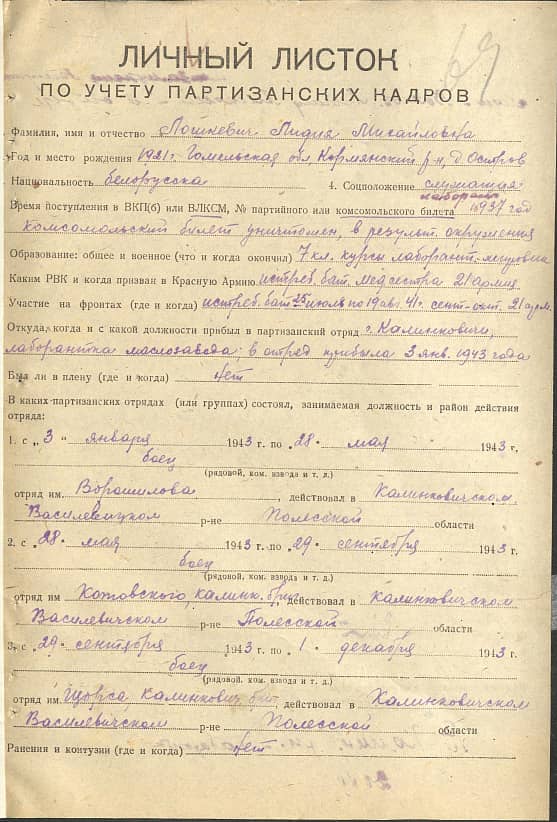 69
ЛИЧНЫЙ ЛИСТОК
ПО УЧЕТУ ПАРТИЗАНСКИХ КАДРОВ
Фамилия, имя и отчество Лошкевич Лидия Михайловна
Год и место рождения 1921 г. Гомельская обл, Кормянский р-н, д. Остров
Национальность белорусска 4. Соцположение служащая
лаборант
Время поступления в ВКП(б) или ВЛКСМ, № партийного или комсомольского билета 1937 год
комсомольский билет уничтожен, в результ. окружения
Образование: общее и военное (что и когда окончил) 7 кл. курсы лаборант-
Каким РВК и когда призван в Красную Армию истреб. бат. медсестра 21 армия
Участие на фронтах (где и когда) истреб. бат. 25 июль по 19 авг. 41 г. сент-окт. 21 арм.
Откуда, когда и с какой должности прибыл в партизанский отряд г. Калинковичи,
лаборантка маслозавода: в отряд прибыла 3 янв. 1943 года
Был ли в плену (где и когда) нет
В каких партизанских отрядах (или группах) состоял, занимаемая должность и район действия
отряда:
1. с „3" января 1943 г. по „28" мая 1943 г,
боец
(рядовой, ком. взвода и т. д.)
отряд им. Ворошилова, действовал в Калинковичском,
Василевицком р-не Полесской области
2. с „28" мая 1943 г. по „29" сентября 1943 г.
боец
(рядовой, ком. взвода и т. д.)
отряд им Котовского калинк. бриг действовал в Калинковичском
Василевичском р-не Полесской области
3. с „29" сентября 1943 г. по „1" декабря 1943 г.
боец
(рядовой, ком. взвода и т. д.)
отряд им Щорса Калинкович. бриг, действовал в Калинковичском
Василевичском р-не Полесской области
Ранения и контузии (где и когда) нет